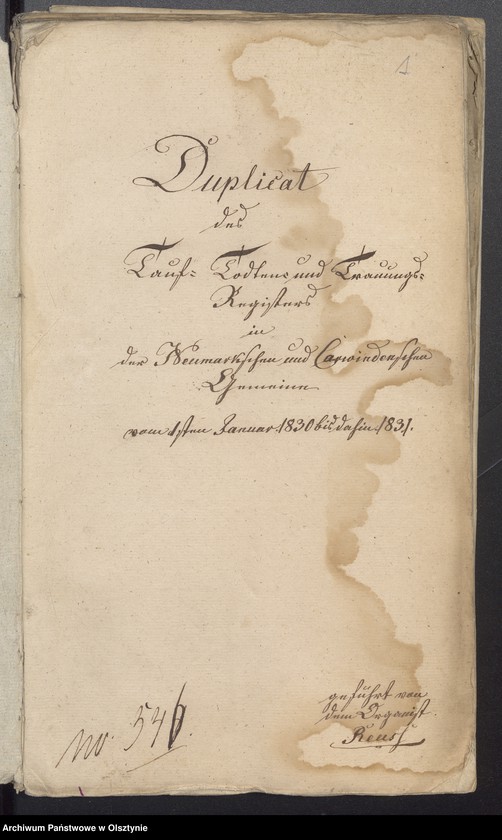 1
Duplicat
des
Tauf- Todten- und Trauungs-
Registers
in
der Neumarkschen und Carwindenschen
Gemeine
vom 1sten Januar 1830 bis dahin 1831.
geführt von
dem Organist
Reuss
No. 546.
Archiwum Państwowe w Olsztynie